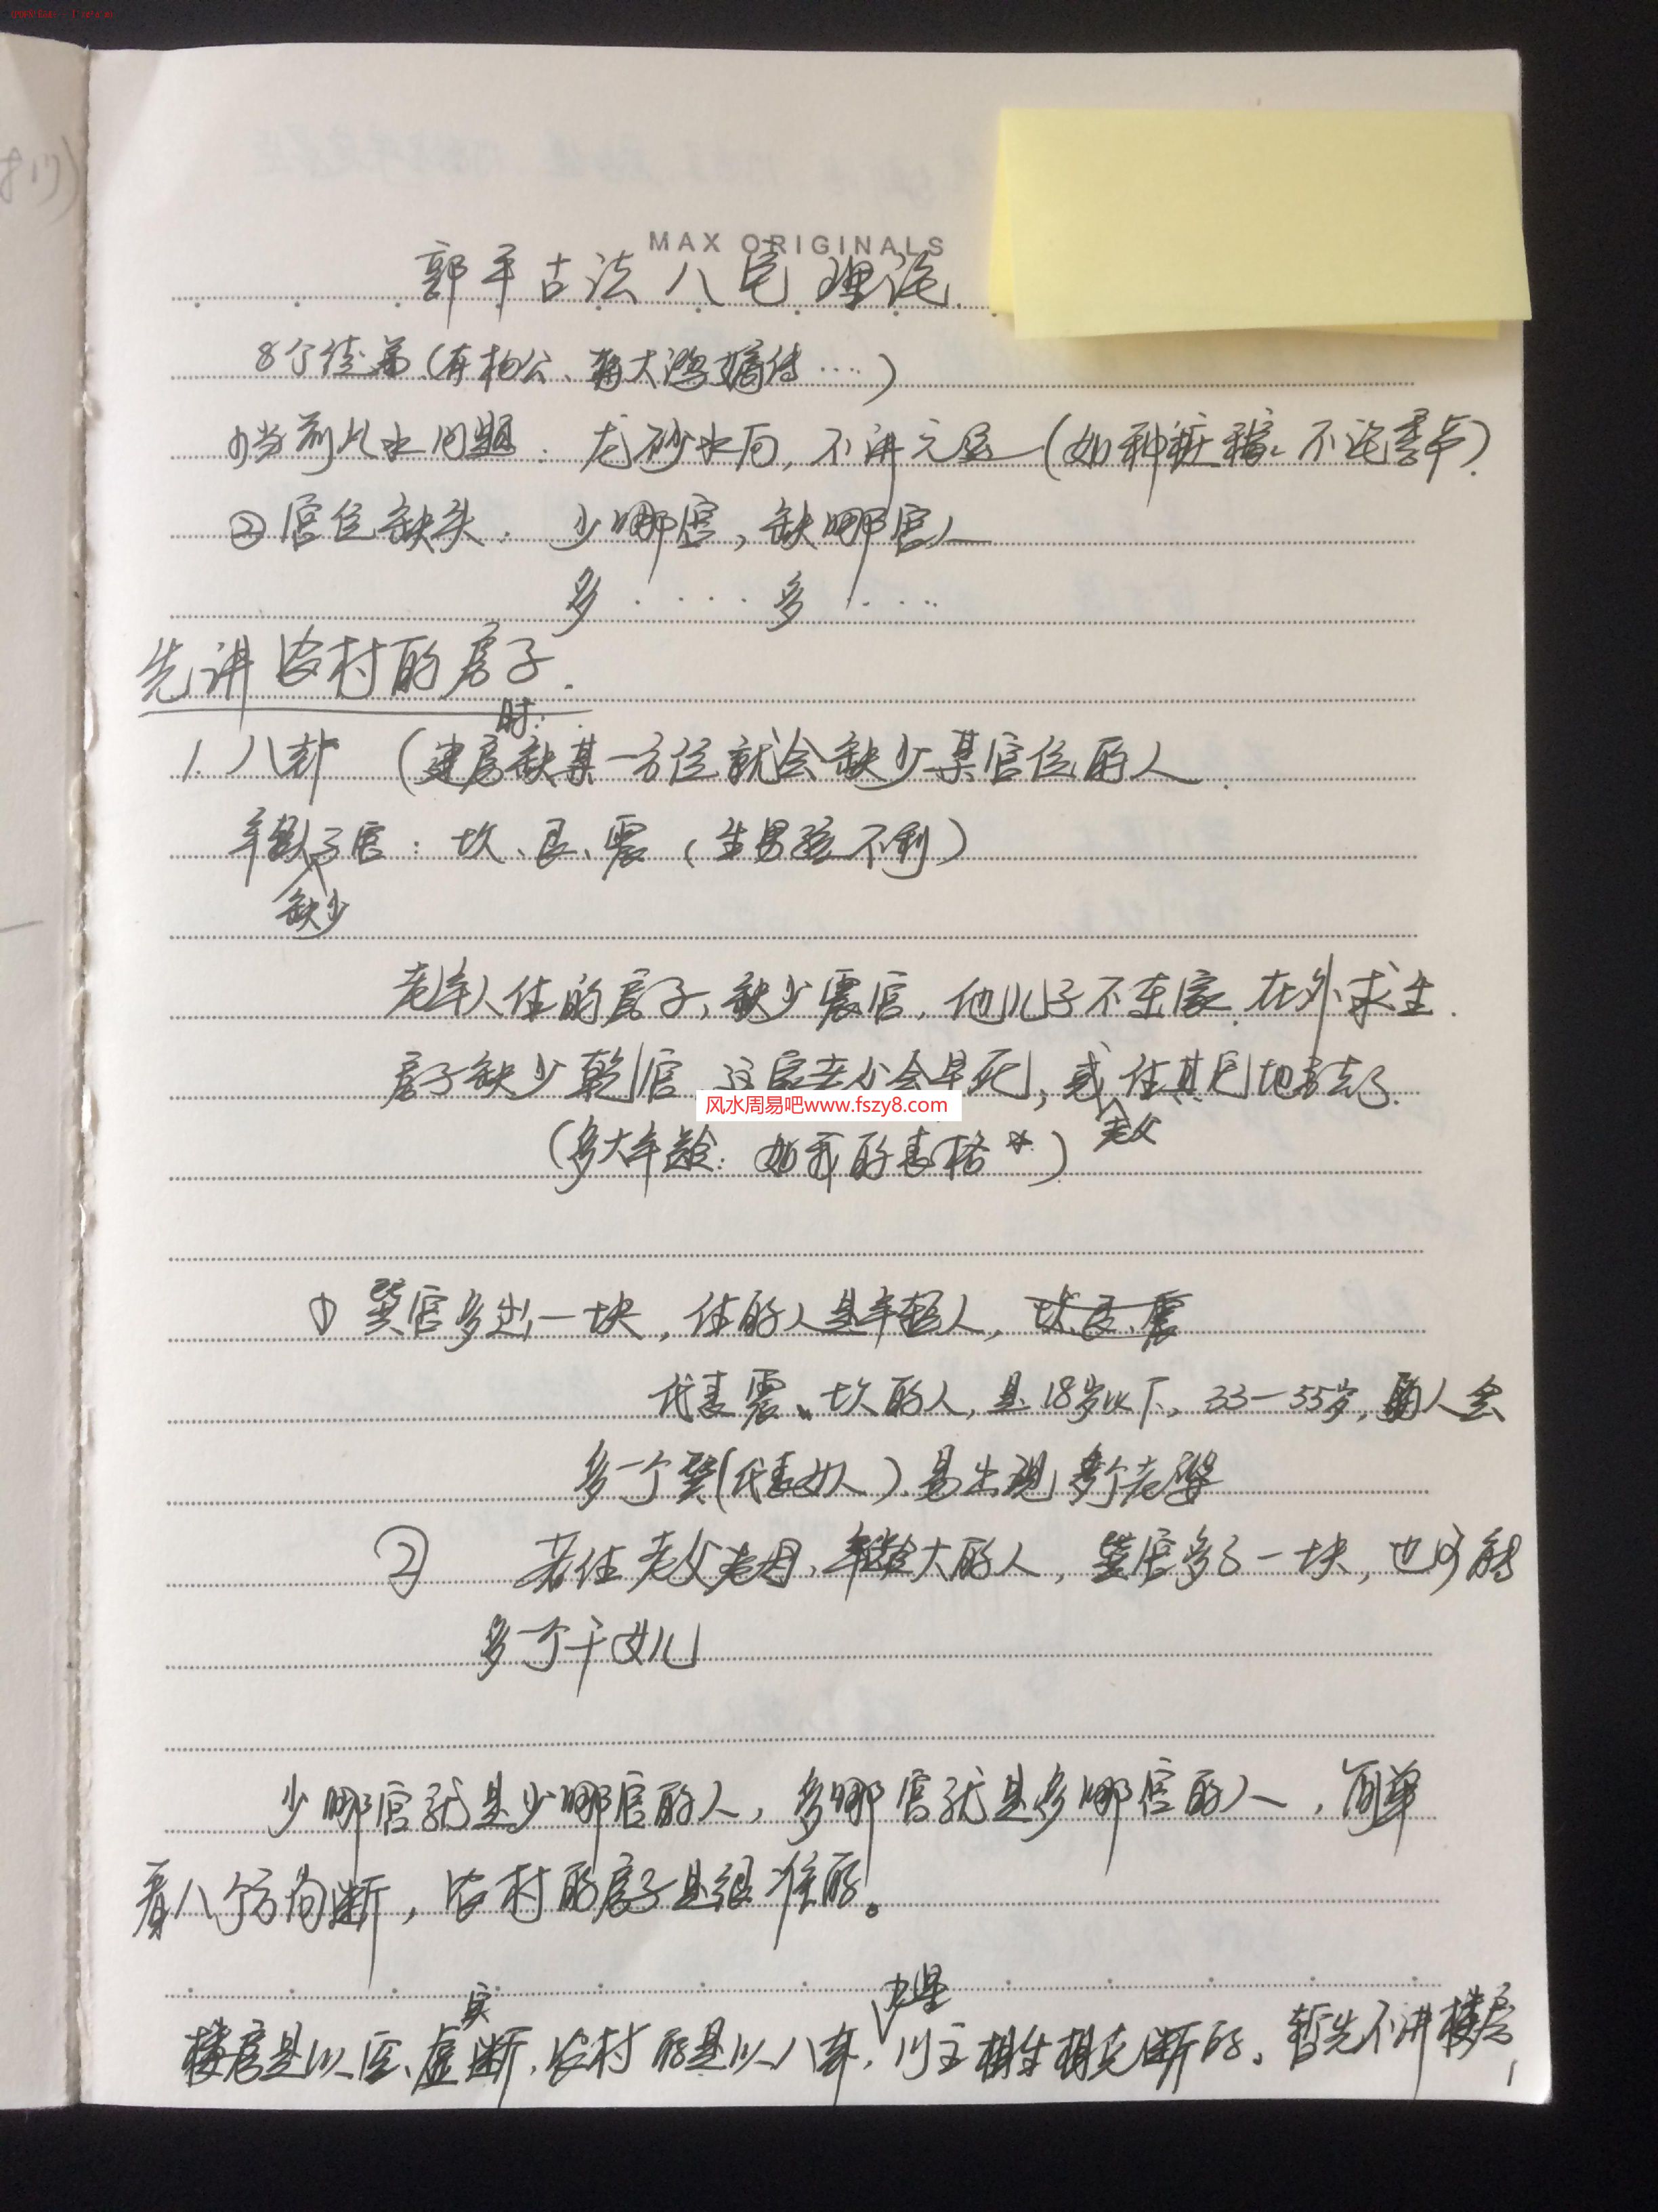 MAX ORIGINALS
郭平古法八宅理论.
8个徒弟(有杨公、蒋大鸿嫡传····)
①当前风水问题:龙砂水向,不讲元运(如种庄稼不论季节).
②宫位缺失:少哪宫,缺哪宫人
多·····多·····
先讲农村的房子.
时
1.八卦(建房缺某一方位就会缺少某宫位的人.
年轻人子宫:坎、艮、震(生男孩不利)
缺少
老年人住的房子,缺少震宫,他儿子不在家.在外求生.
房子缺少乾宫 这家老公会早死,或住其它地方去了.
风水周易吧www.fszy8.com
老父
(多大年龄:如我的表格*)
① 巽宫多出一块,住的人是年轻人,坎、艮、震
代表震、坎的人,是18岁以下,33-55岁,男人会
多一个巽(代表女人).易出现多个老婆
② 若住老父老母,年龄大的人,巽宫多了一块,也可能
多一个干女儿
少哪宫就是少哪宫的人,多哪宫就是多哪宫的人,简单
看八个方向断,农村的房子是很准的。
实
楼房是以空、虚断,农村的是以八卦,门主相生相克断的。暂先不讲楼房
1